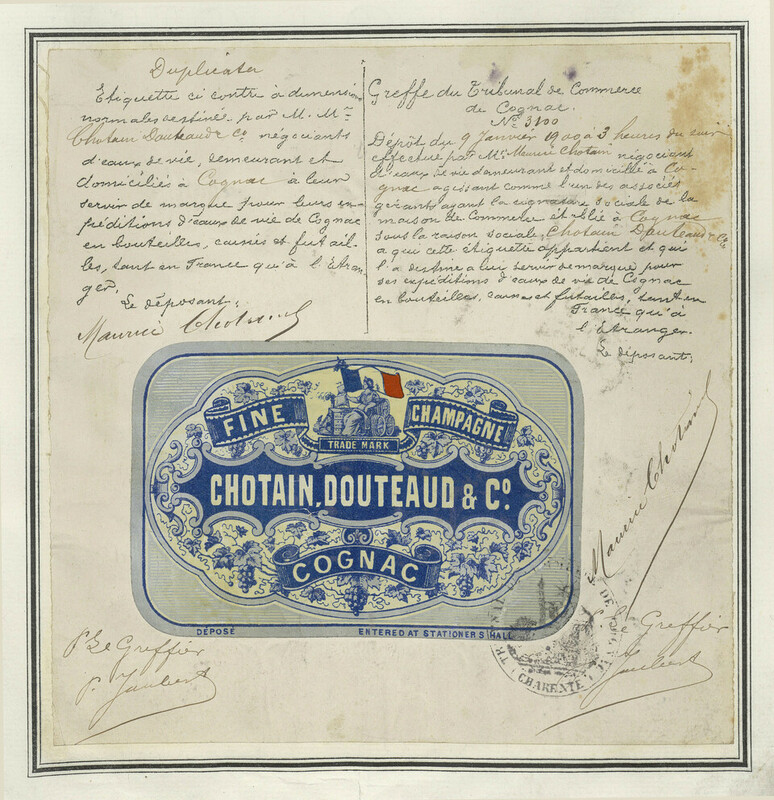 Duplicata
Etiquette ci contre à dimensions
normales destinée par M. Mrs
Chotain Douteaud & Co négociants
d'eaux de vie, demeurant et
domiciliés à Cognac à leur
servir de marque pour leurs ex-
péditions d'eaux de vie de Cognac
en bouteilles, caisses et futail-
les, tant en France qu'à l'Etran-
ger.
Le déposant:
Maurice Chotain
Greffe du Tribunal de Commerce
de Cognac.
No 3100
Dépôt du 9 Janvier 19 à 3 heures du soir
effectué par Mr Maurice Chotain négociant
d'eaux de vie demeurant et domicilié à Co-
gnac agissant comme l'un des associés
gérants ayant la signature sociale de la
maison de Commerce établie à Cognac
sous la raison sociale, Chotain Douteaud & Co
a qui cette étiquette appartient et qui
l'a destine a lui servir de marque pour
ses expéditions d'eaux de vie de Cognac
en bouteilles, caisses et futailles, tant en
France qu'à
l'Etranger.
Le déposant;
Maurice Chotain
FINE CHAMPAGNE
TRADE MARK
CHOTAIN, DOUTEAUD & Co.
COGNAC
DÉPOSÉ ENTERED AT STATIONERS HALL
P. Le Greffier
P. Jaubert
P. Le Greffier
Jaubert
TRIBUNAL DE COMMERCE DE COGNAC
CHARENTE